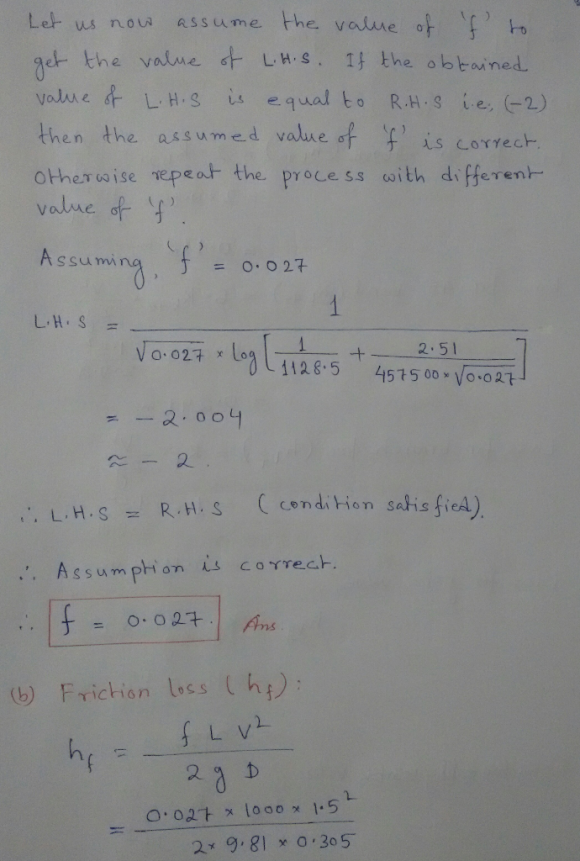 Let us now assume the value of 'f' to
get the value of L.H.S. If the obtained
value of L.H.S is equal to R.H.S i.e, (-2)
then the assumed value of 'f' is correct.
Otherwise repeat the process with different
value of 'f'.
Assuming, 'f' = 0.027
L.H.S = 1 / (√0.027 × log[1/1128.5 + 2.51/(457500×√0.027)])
= -2.004
≈ -2.
∴ L.H.S = R.H.S (condition satisfied).
∴ Assumption is correct.
∴ f = 0.027. Ans.
(b) Friction loss (hf):
hf = f L V² / 2 g D
= 0.027 × 1000 × 1.5² / 2× 9.81 × 0.305